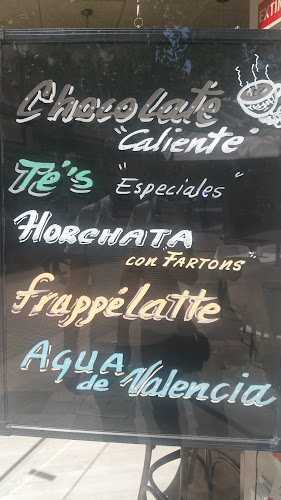 EXTIN
Chocolate
"Caliente"
Té's "Especiales"
HORCHATA
con FARTONS"
frappélatte
AGUA
de Valencia